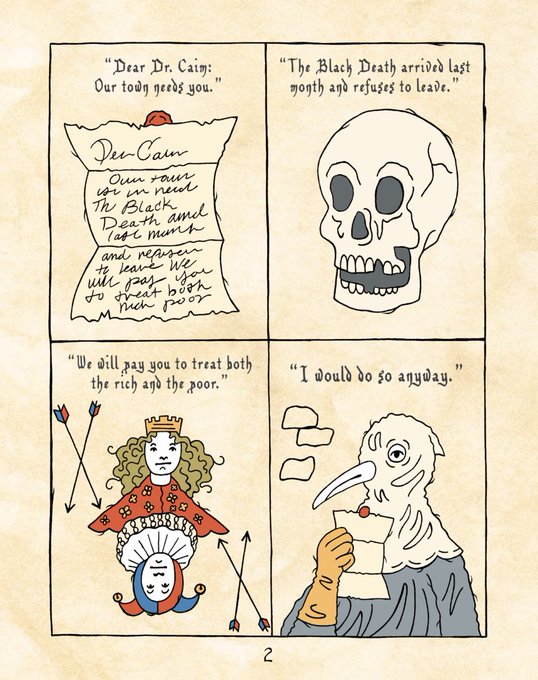 “Dear Dr. Caim:
Our town needs you.”
Dear Caim
Our town
is in need
Th Black
Death arrived
last month
and refuses
to leave We
will pay you
to treat both
rich poor
“The Black Death arrived last
month and refuses to leave.”
“We will pay you to treat both
the rich and the poor.”
“I would do so anyway.”
2